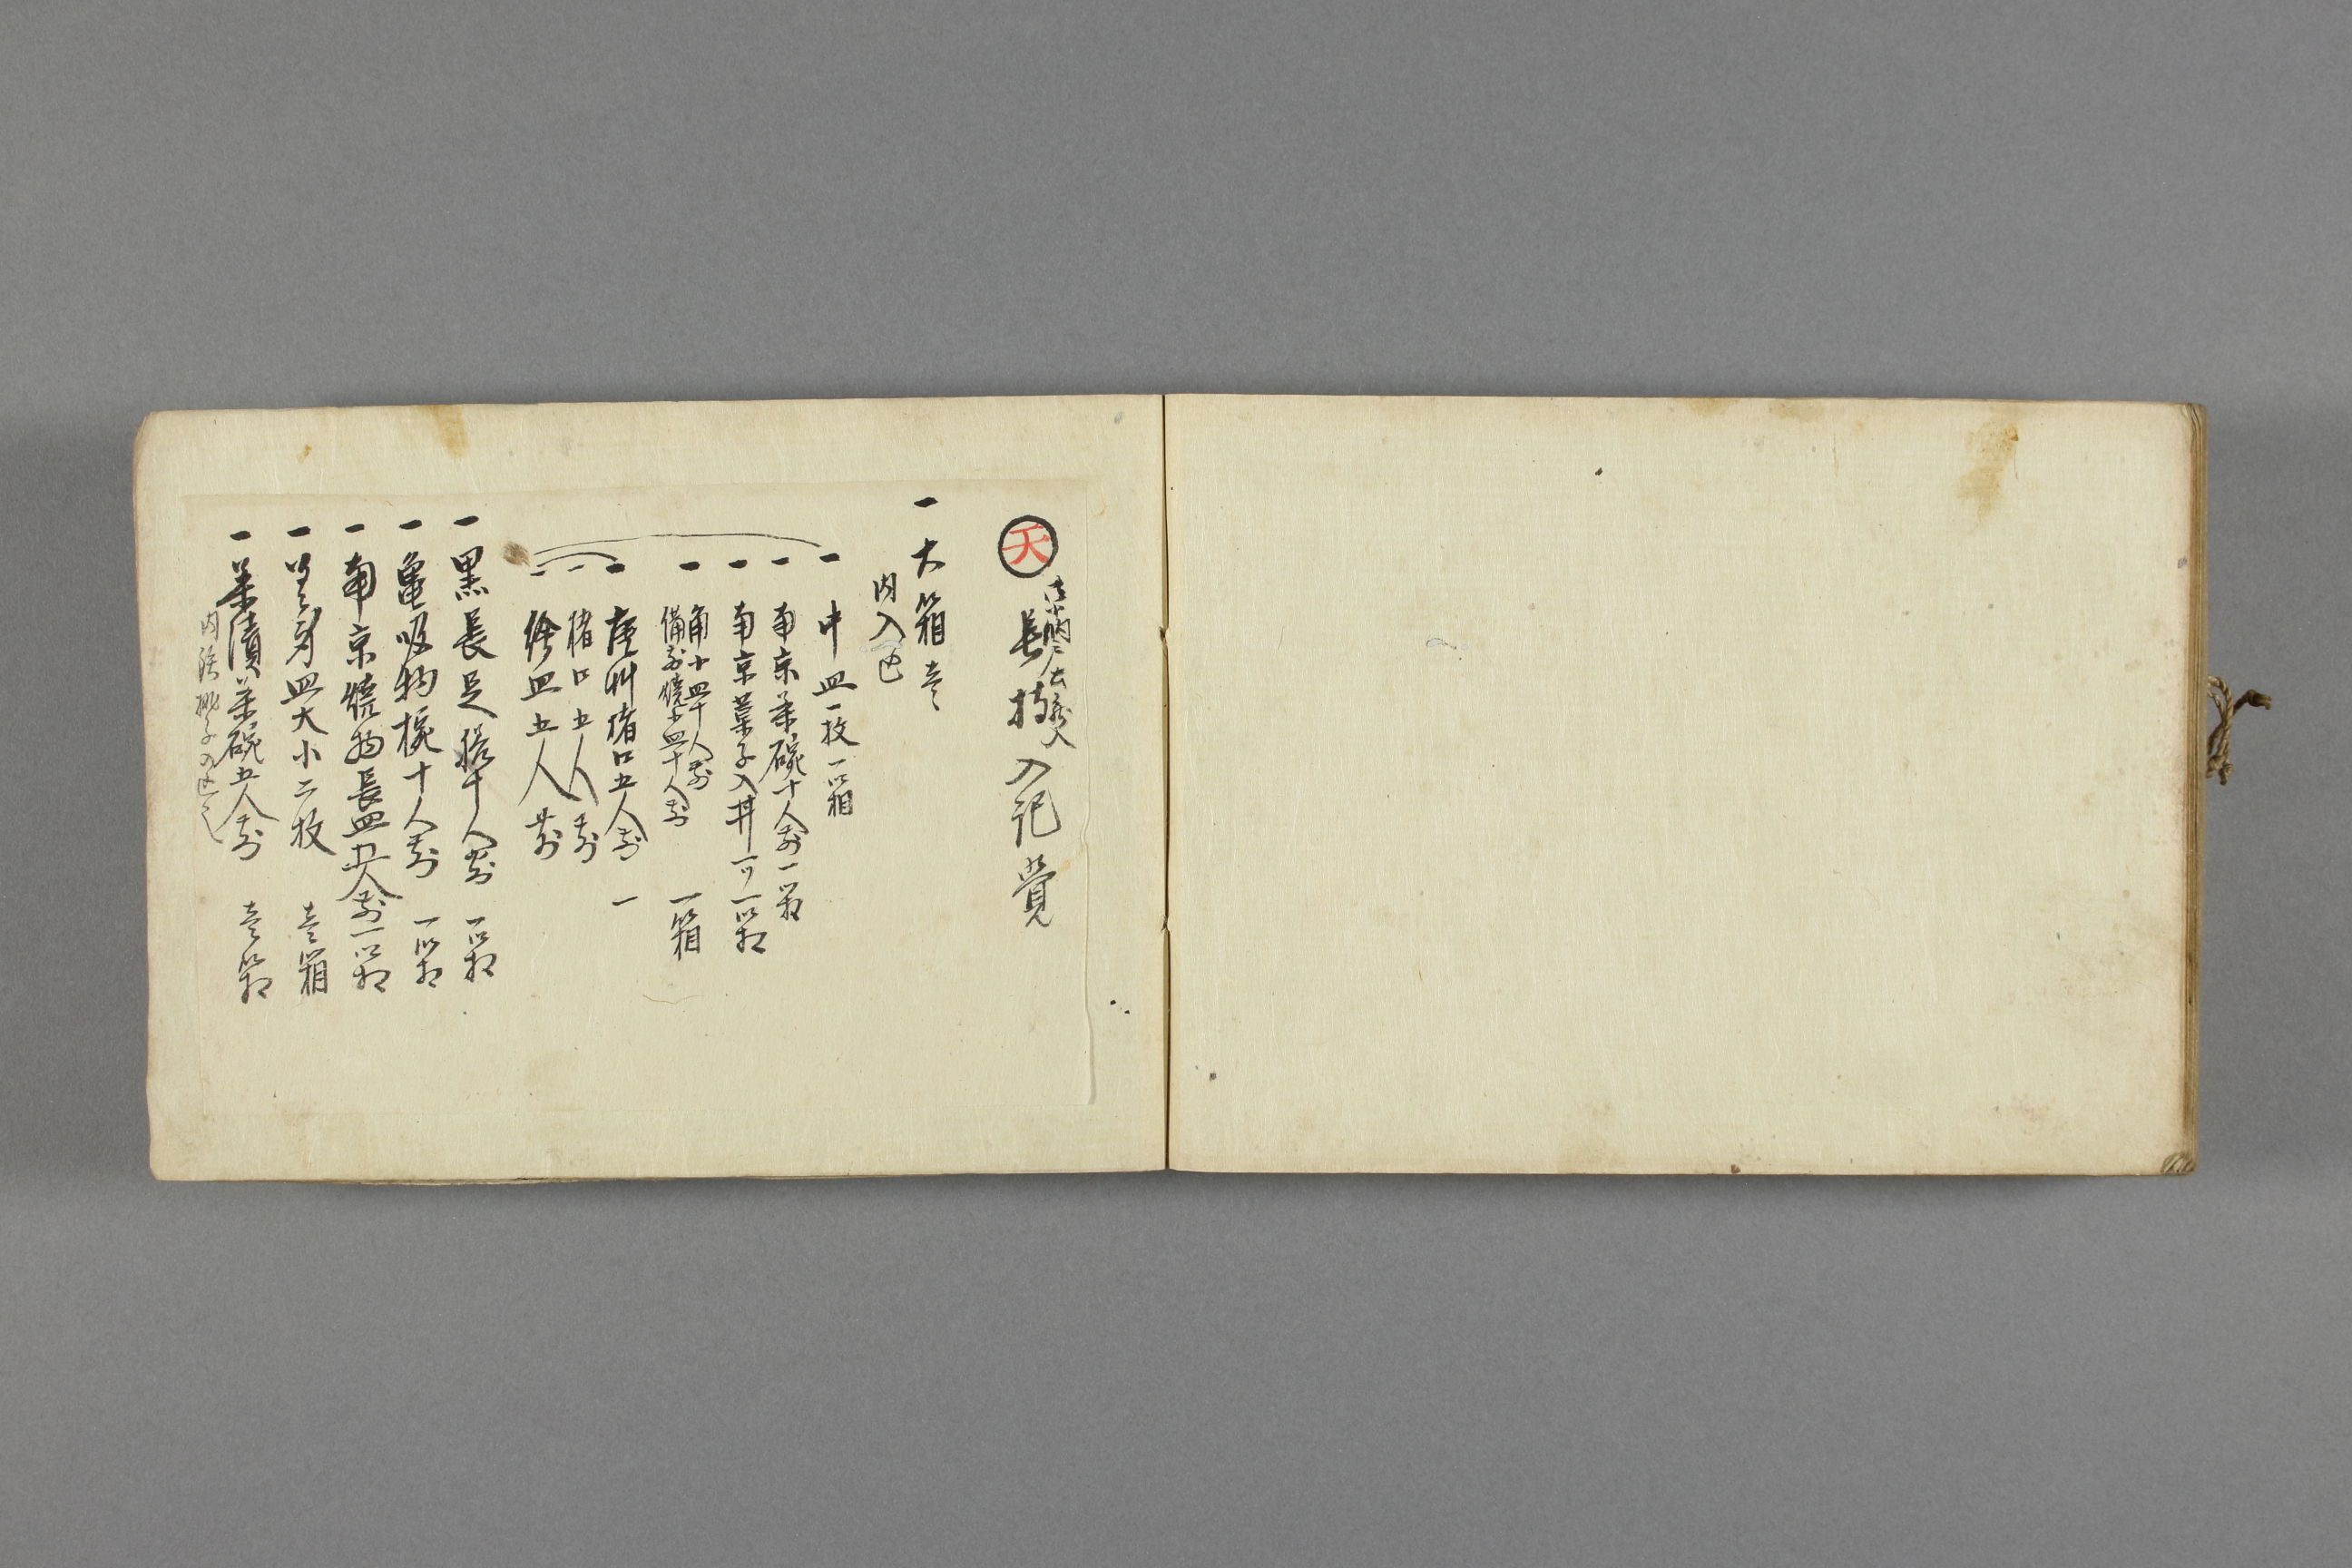 天
長持入記覚
一 大箱 壱
内入
一 中皿一枚 一箱
一 南京茶碗十人前 一箱
一 南京菓子入丼一 一箱
一 角小皿十人前
備前焼小皿十人前 一箱
一 唐州猪口五人前 一
一 猪口五人前
一 絵皿五人前
一 黒長足膳十人前 一箱
一 亀吸物椀十人前 一箱
一 南京焼物長皿五人前 一箱
一 皿大小二枚 壱箱
一 茶漬茶碗五人前 壱箱